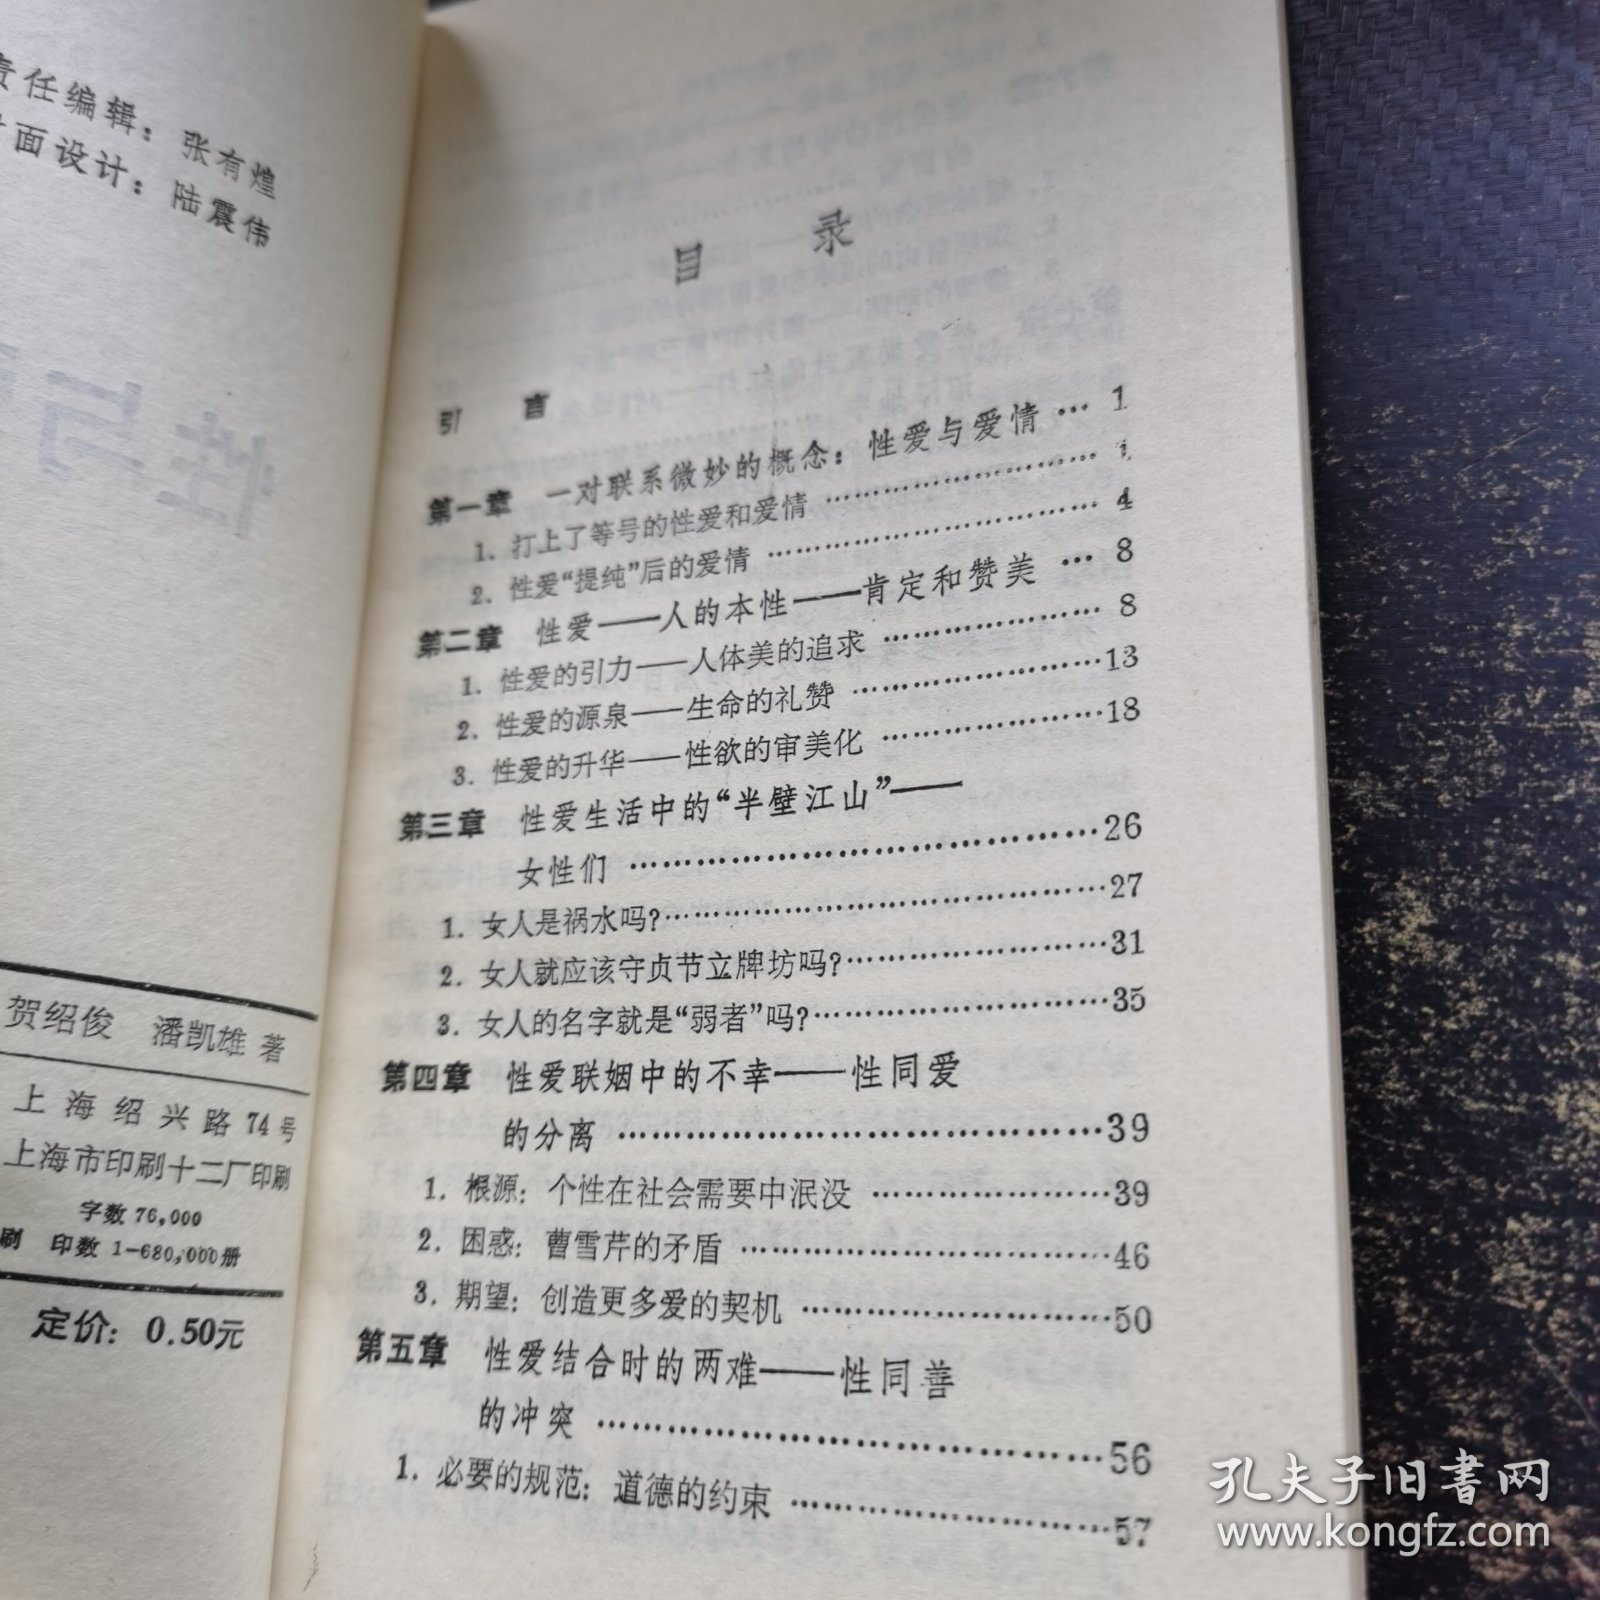 责任编辑：张有煌
封面设计：陆震伟
贺绍俊 潘凯雄 著
上海绍兴路74号
上海市印刷十二厂印刷
字数 76,000
刷 印数 1—680,000册
定价：0.50元
目 录
引 言
第一章 一对联系微妙的概念：性爱与爱情 … 1
1. 打上了等号的性爱和爱情 …………………… 1
2. 性爱“提纯”后的爱情 …………………… 4
第二章 性爱——人的本性——肯定和赞美 … 8
1. 性爱的引力——人体美的追求 …………………… 8
2. 性爱的源泉——生命的礼赞 ……………………13
3. 性爱的升华——性欲的审美化 ……………………18
第三章 性爱生活中的“半壁江山”——
女性们 ……………………………………26
1. 女人是祸水吗？……………………………………27
2. 女人就应该守贞节立牌坊吗？……………………31
3. 女人的名字就是“弱者”吗？……………………35
第四章 性爱联姻中的不幸——性同爱
的分离 ……………………………………39
1. 根源：个性在社会需要中泯没 …………………39
2. 困惑：曹雪芹的矛盾 ……………………………46
3. 期望：创造更多爱的契机 ………………………50
第五章 性爱结合时的两难——性同善
的冲突 ……………………………………56
1. 必要的规范：道德的约束 ………………………57
孔夫子旧书网
www.kongfz.com